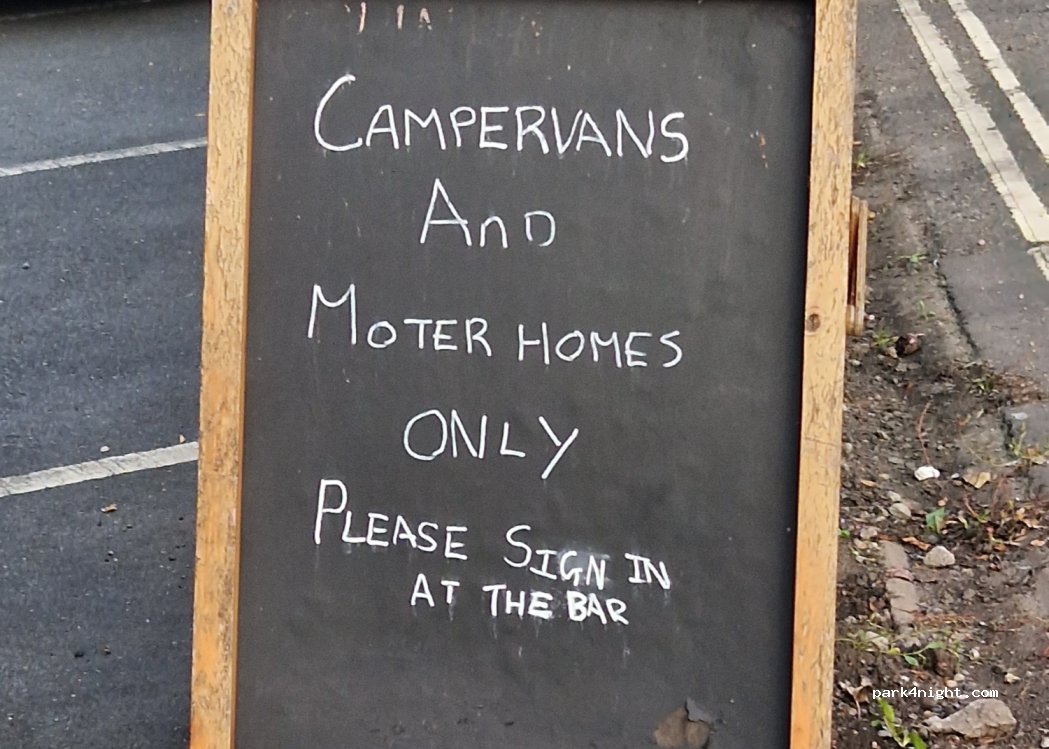 CAMPERVANS
AnD
MOTER HOMES
ONLY
PLEASE SIGN IN
AT THE BAR
park4night.com